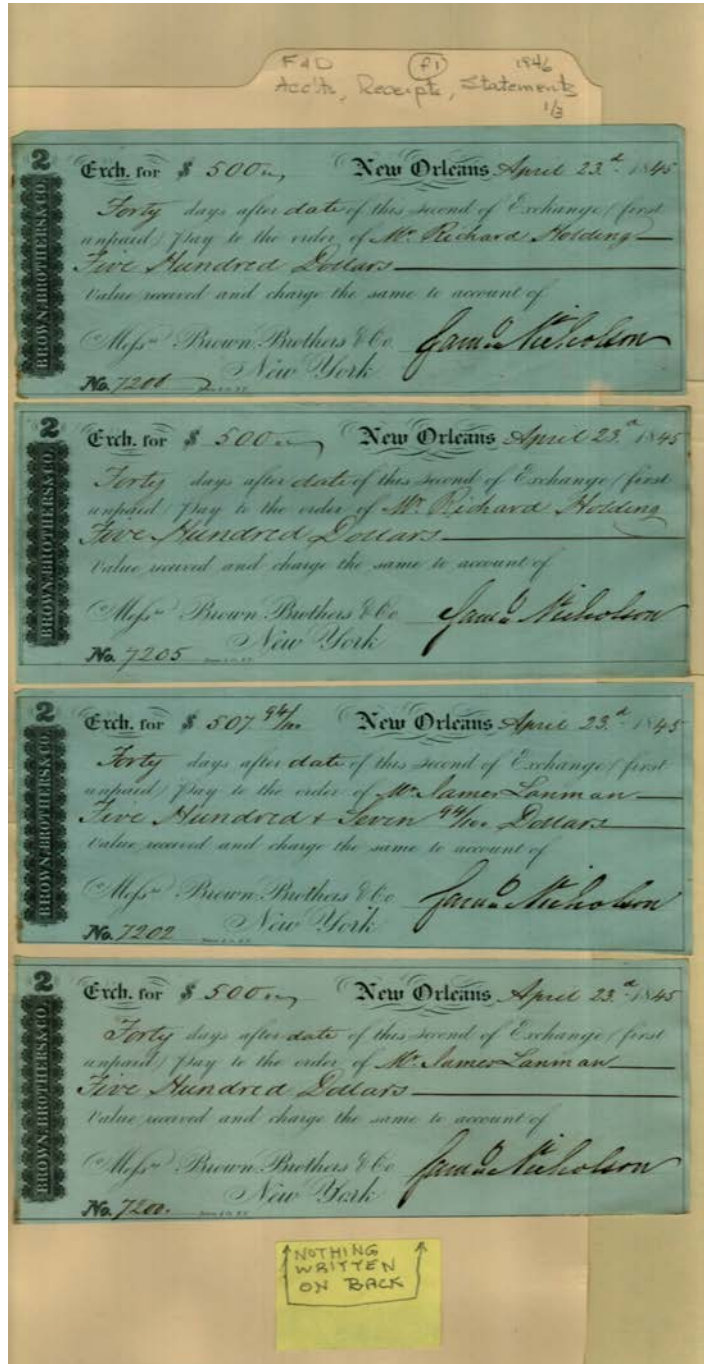 F & D (f1) 1846
Acc'ts, Receipts, Statements
1/3
2
BROWN BROTHERS & CO.
Exch. for $ 500 New Orleans April 23.d 1845
Forty days after date of this second of Exchange (first
unpaid) Pay to the order of Mr. Richard Holding
Five Hundred Dollars
Value received and charge the same to account of
Messrs Brown Brothers & Co
New York
No.
Nicholson
2
BROWN BROTHERS & CO.
Exch. for $ 500 New Orleans April 23.d 1845
Forty days after date of this second of Exchange (first
unpaid) Pay to the order of Mr. Richard Holding
Five Hundred Dollars
Value received and charge the same to account of
Messrs Brown Brothers & Co
New York
No. 7205
Nicholson
2
BROWN BROTHERS & CO.
Exch. for $ 507 94/100 New Orleans April 23.d 1845
Forty days after date of this second of Exchange (first
unpaid) Pay to the order of Mr. James Lanman
Five Hundred & Seven 94/100 Dollars
Value received and charge the same to account of
Messrs Brown Brothers & Co
New York
No. 7202
Nicholson
2
BROWN BROTHERS & CO.
Exch. for $ 500 New Orleans April 23.d 1845
Forty days after date of this second of Exchange (first
unpaid) Pay to the order of Mr. James Lanman
Five Hundred Dollars
Value received and charge the same to account of
Messrs Brown Brothers & Co
New York
No. 7200.
Nicholson
NOTHING
WRITTEN
ON BACK